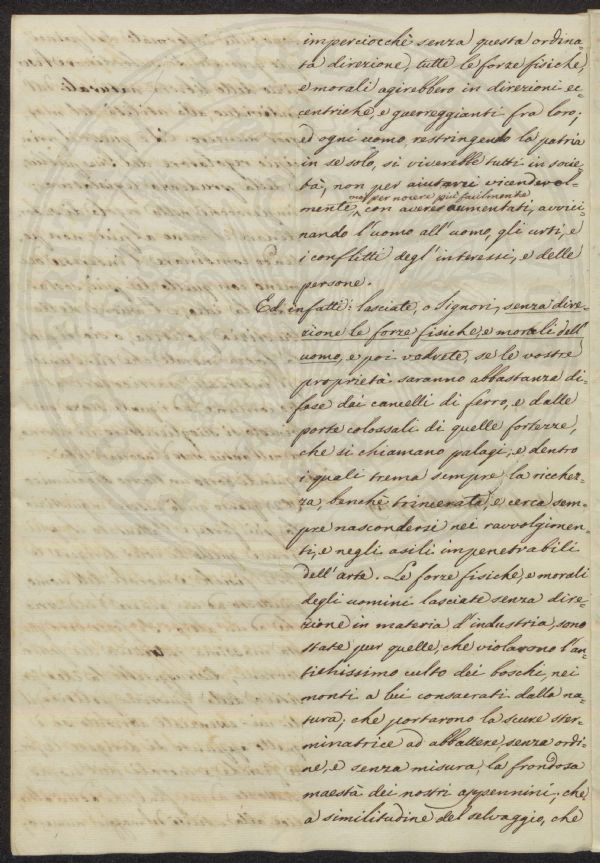 imperciocchè senza questa ordina=
ta direzione, tutte le forze fisiche,
e morali agirebbero in direzioni ec=
centriche, e guerreggianti fra loro;
ed ogni uomo, restringendo la patria
in se solo, si viverebbe tutti in socie=
tà, non per aiutarci vicendevol=
ma per nocere più facilmente
mente, con avere aumentati, avvici=
nando l'uomo all'uomo, gli urti, e
i conflitti degl'interessi, e delle
persone.
Ed infatti: lasciate, o Signori, senza dire=
zione le forze fisiche, e morali dell'
uomo, e poi vedrete, se le vostre
proprietà saranno abbastanza di=
fese dai cancelli di ferro, e dalle
porte colossali di quelle fortezze,
che si chiamano palagi, e dentro
i quali trema sempre la ricchez=
za, benchè trincerata, e cerca sem=
pre nascondersi nei ravvolgimen=
ti, e negli asili impenetrabili
dell'arte. Le forze fisiche, e morali
degli uomini lasciate senza dire=
zione in materia d'industria, sono
state pur quelle, che violarono l'an=
tichissimo culto dei boschi, nei
monti a lui consacrati dalla na=
tura; che portarono la scure ster=
minatrice ad abbattere, senza ordi=
ne, e senza misura, la frondosa
maestà dei nostri appennini; che,
a similitudine del selvaggio, che